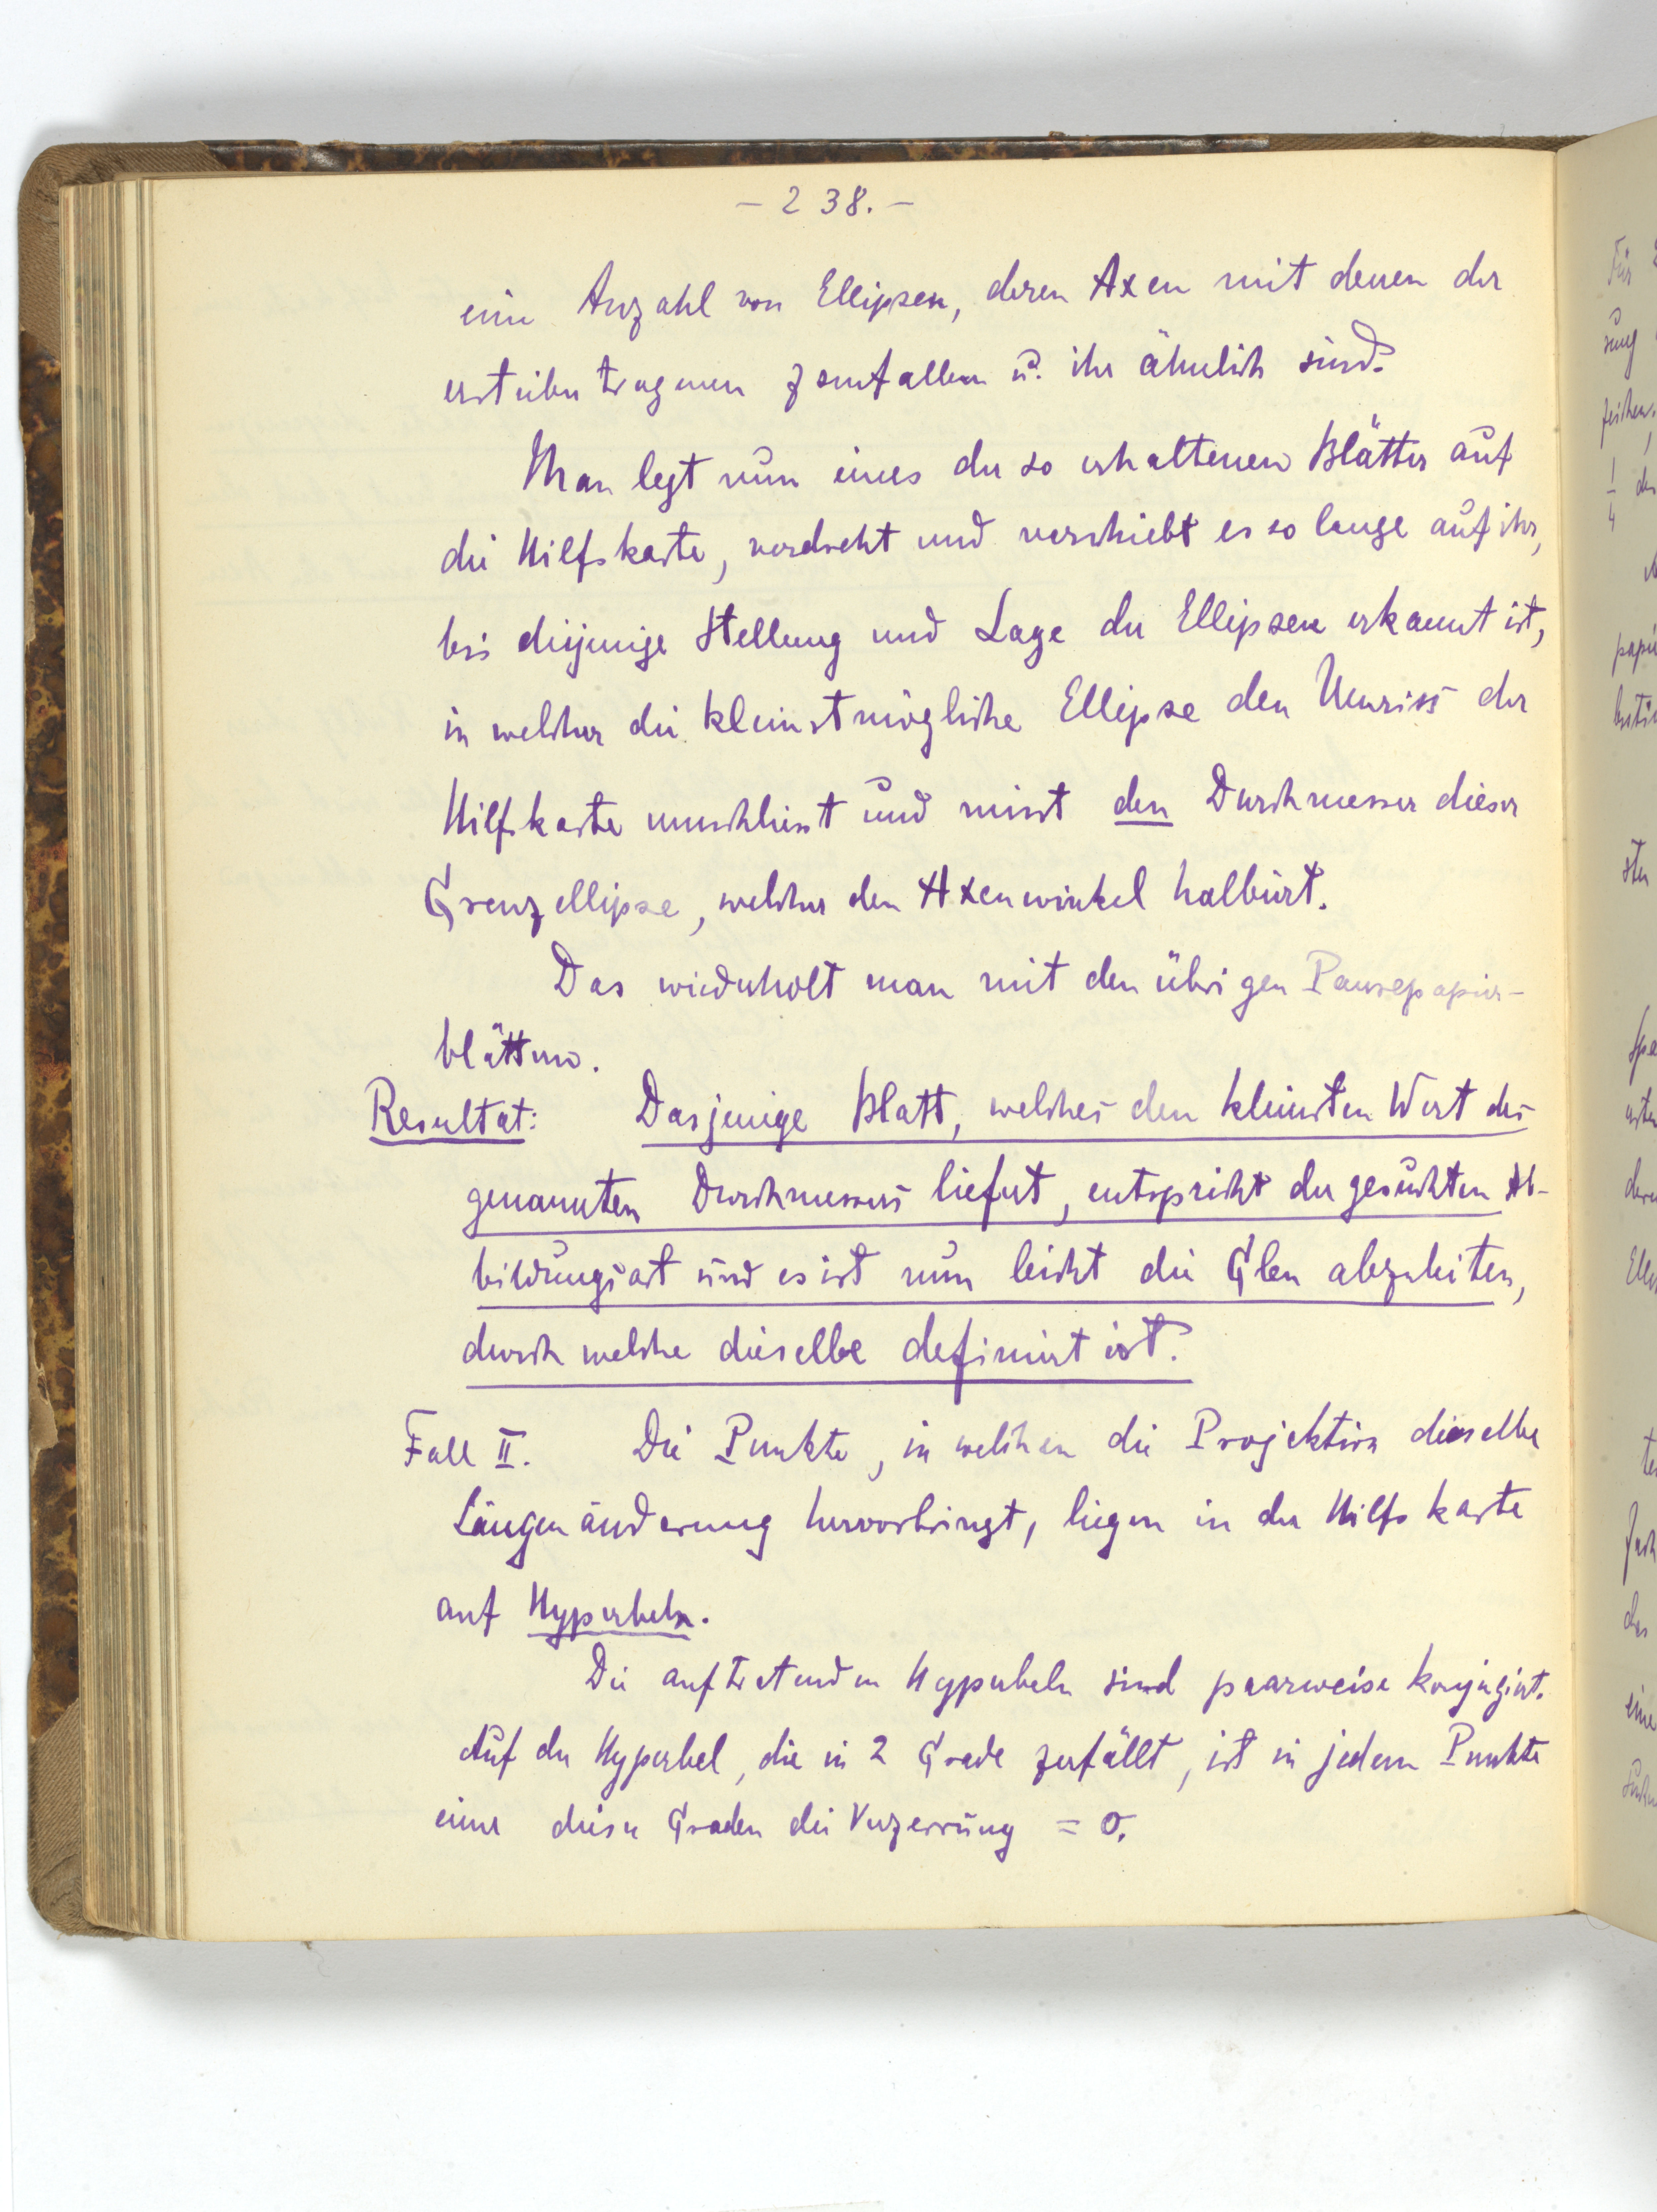 – 238. –
eine Anzahl von Ellipsen, deren Axen mit denen der
erstübertragenen zsmfallen u. ihr ähnlich sind.
Man legt nun eines der so erhaltenen Blätter auf
die Hilfskarte, verdreht und verschiebt es so lange auf ihr,
bis diejenige Stellung und Lage der Ellipsen erkannt ist,
in welcher die kleinstmögliche Ellipse den Umriss der
Hilfskarte umschliesst und misst den Durchmesser dieser
Grenzellipse, welcher den Axenwinkel halbiert.
Das wiederholt man mit den übrigen Pausepapier-
blättern.
Resultat: Dasjenige Blatt, welches den kleinsten Wert des
genannten Durchmessers liefert, entspricht der gesuchten Ab-
bildungsart und es ist nun leicht die Glen abzuleiten,
durch welche dieselbe definirt ist.
Fall II. Die Punkte, in welchen die Projektion dieselbe
Längenänderung hervorbringt, liegen in der Hilfskarte
auf Hyperbeln.
Die auftretenden Hyperbeln sind paarweise konjugirt.
Auf der Hyperbel, die in 2 Grade zerfällt, ist in jedem Punkte
einer dieser Graden die Verzerrung = 0.